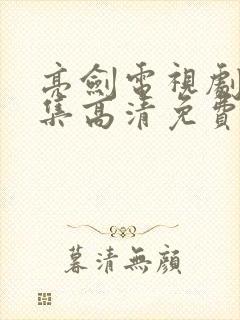 亮劍電視劇
集高清免費
暮清無顏